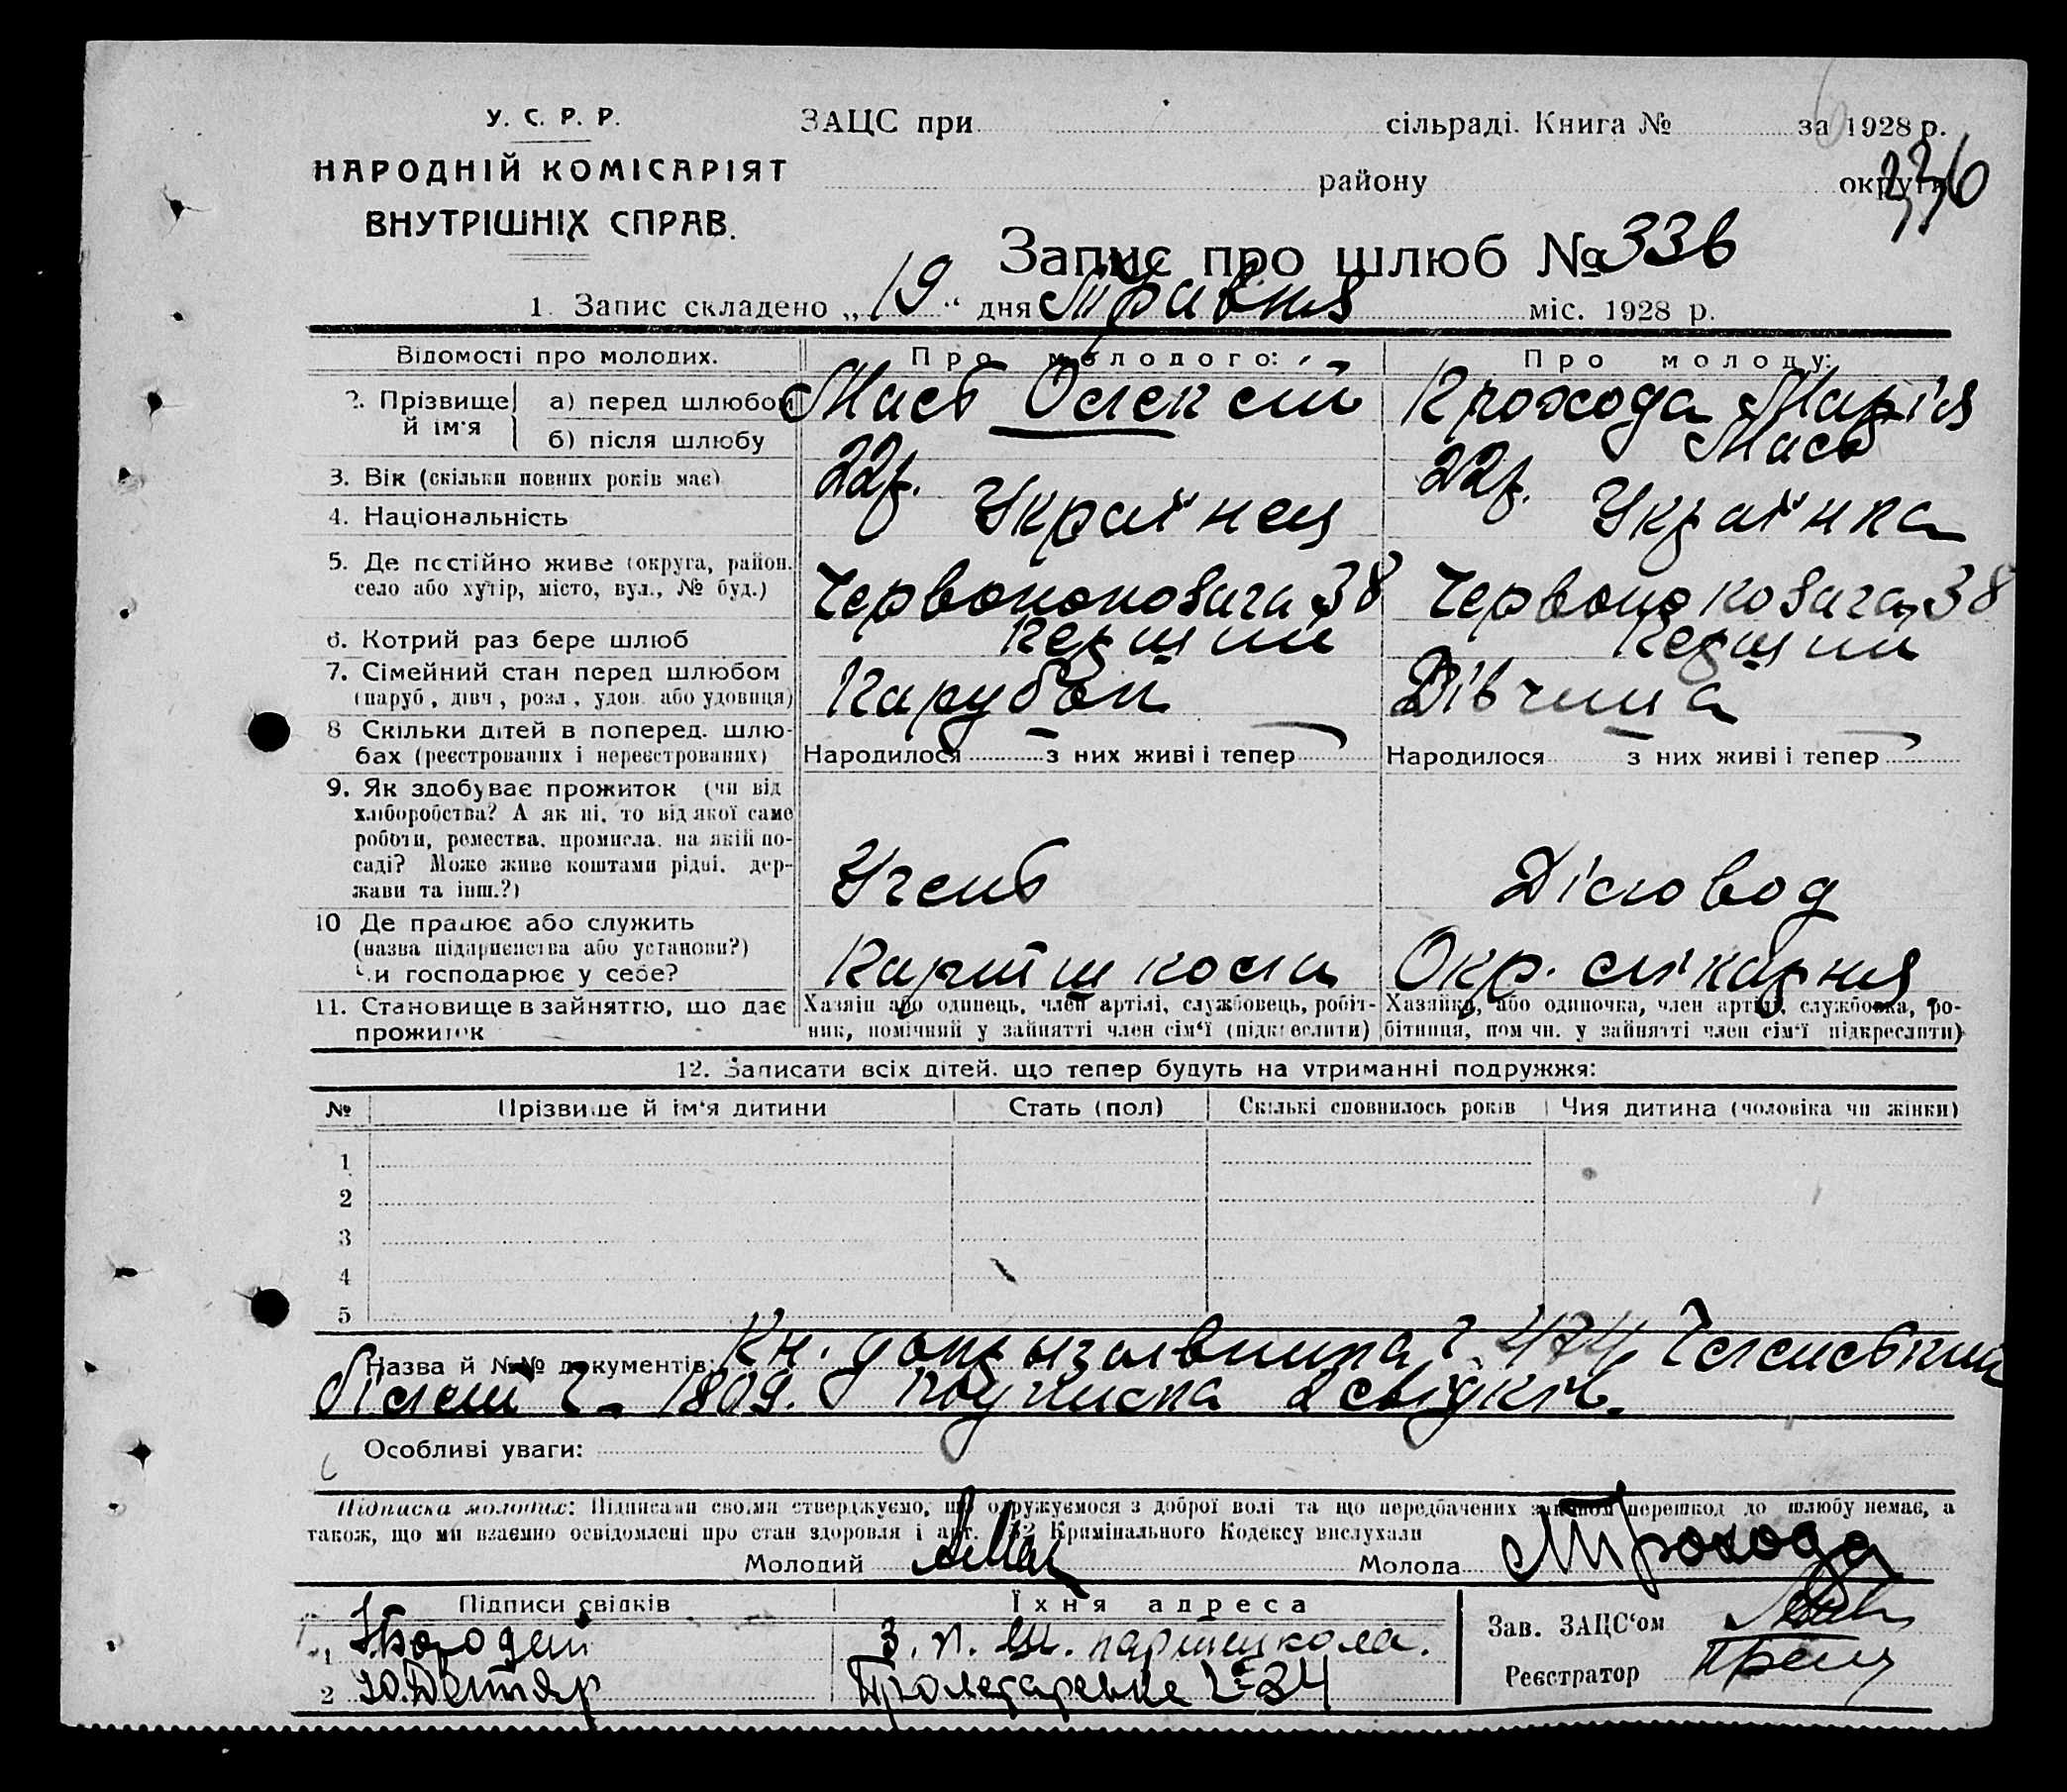 У. С. Р. Р.
НАРОДНІЙ КОМІСАРІЯТ
ВНУТРІШНІХ СПРАВ.
ЗАЦС при сільраді. Книга № за 1928 р.
району округи
336
Запис про шлюб № 336
1. Запис складено „ 19 “ дня Травня міс. 1928 р.
Відомості про молодих. Про молодого: Про молоду:
2. Прізвище й ім'я а) перед шлюбом Мась Олексій Прохода Марія
б) після шлюбу Мась
3. Вік (скільки повних років має) 22р. 22р.
4. Національність Українец Українка
5. Де постійно живе (округа, район. Червонокозача 38 Червонокозача 38
село або хутір, місто, вул., № буд.)
6. Котрий раз бере шлюб Перший Перший
7. Сімейний стан перед шлюбом Парубок Дівчина
(паруб, дівч, розл, удов. або удовиця)
8 Скільки дітей в поперед. шлю-
бах (реєстрованих і нереєстрованих) Народилося з них живі і тепер Народилося з них живі і тепер
9. Як здобуває прожиток (чи від
хліборобства? А як ні, то від якої саме
роботи, ремества, промисла, на якій по-
саді? Може живе коштами рідні, дер-
жави та інш.?) Учень Діловод
10 Де працює або служить
(назва підприємства або установи?)
Чи господарює у себе? Партшкола Окр. лікарня
11. Становище в зайняттю, що дає
прожиток
Хазяїн або одинець, член артілі, службовець, робіт-
ник, помічний у зайнятті член сім'ї (підкреслити)
Хазяйка, або одиночка, член артілі, службовка, ро-
бітниця, пом чн. у зайнятті член сім'ї підкреслити)
12. Записати всіх дітей, що тепер будуть на утриманні подружжя:
№ Прізвище й ім'я дитини Стать (пол) Скількі сповнилось років Чия дитина (чоловіка чи жінки)
1
2
3
4
5
Назва й №№ документів: Кн. допризивника 474 Членський
білет 1809. Подписка 2 свідків.
Особливі уваги:
Підписка молодих: Підписами своїми стверджуємо, що одружуємося з доброї волі та що передбачених законом перешкод до шлюбу немає, а
також, що ми взаємно освідомлені про стан здоровля і арт. Кримінального Кодексу вислухали
Молодий Молода МПрохода
Підписи свідків Їхня адреса
1 партшкола.
2 Ю.Дегтяр 34
Зав. ЗАЦС'ом
Реєстратор